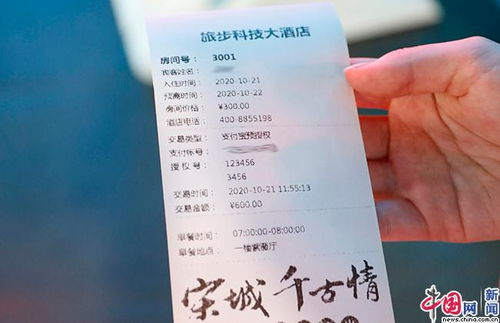 旅步科技大酒店
房间号： 3001
宾客姓名：
入住时间： 2020-10-21
预离时间： 2020-10-22
房间价格： ¥300.00
酒店电话： 400-8855198
交易类型： 支付宝预授权
支付帐号：
授 权 号： 123456
3456
交易时间： 2020-10-21 11:55:13
交易金额： ¥600.00
早餐时间： 07:00:00-08:00:00
早餐地点： 一楼餐厅
宋城千古情
中国网新闻
news.china.com.cn